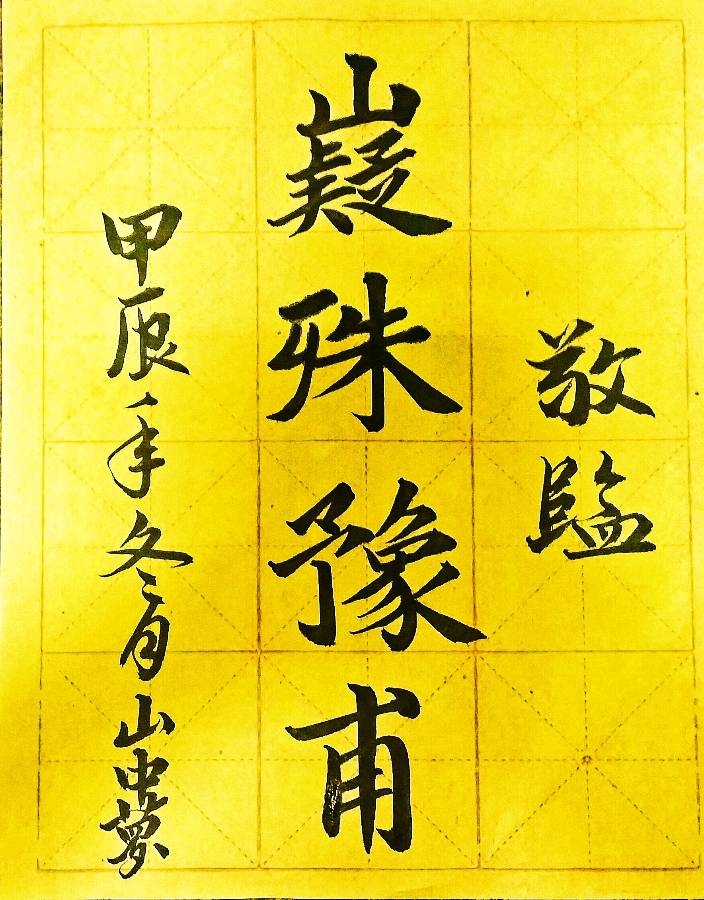 敬監
嶷殊豫甫
甲辰年冬月山中夢